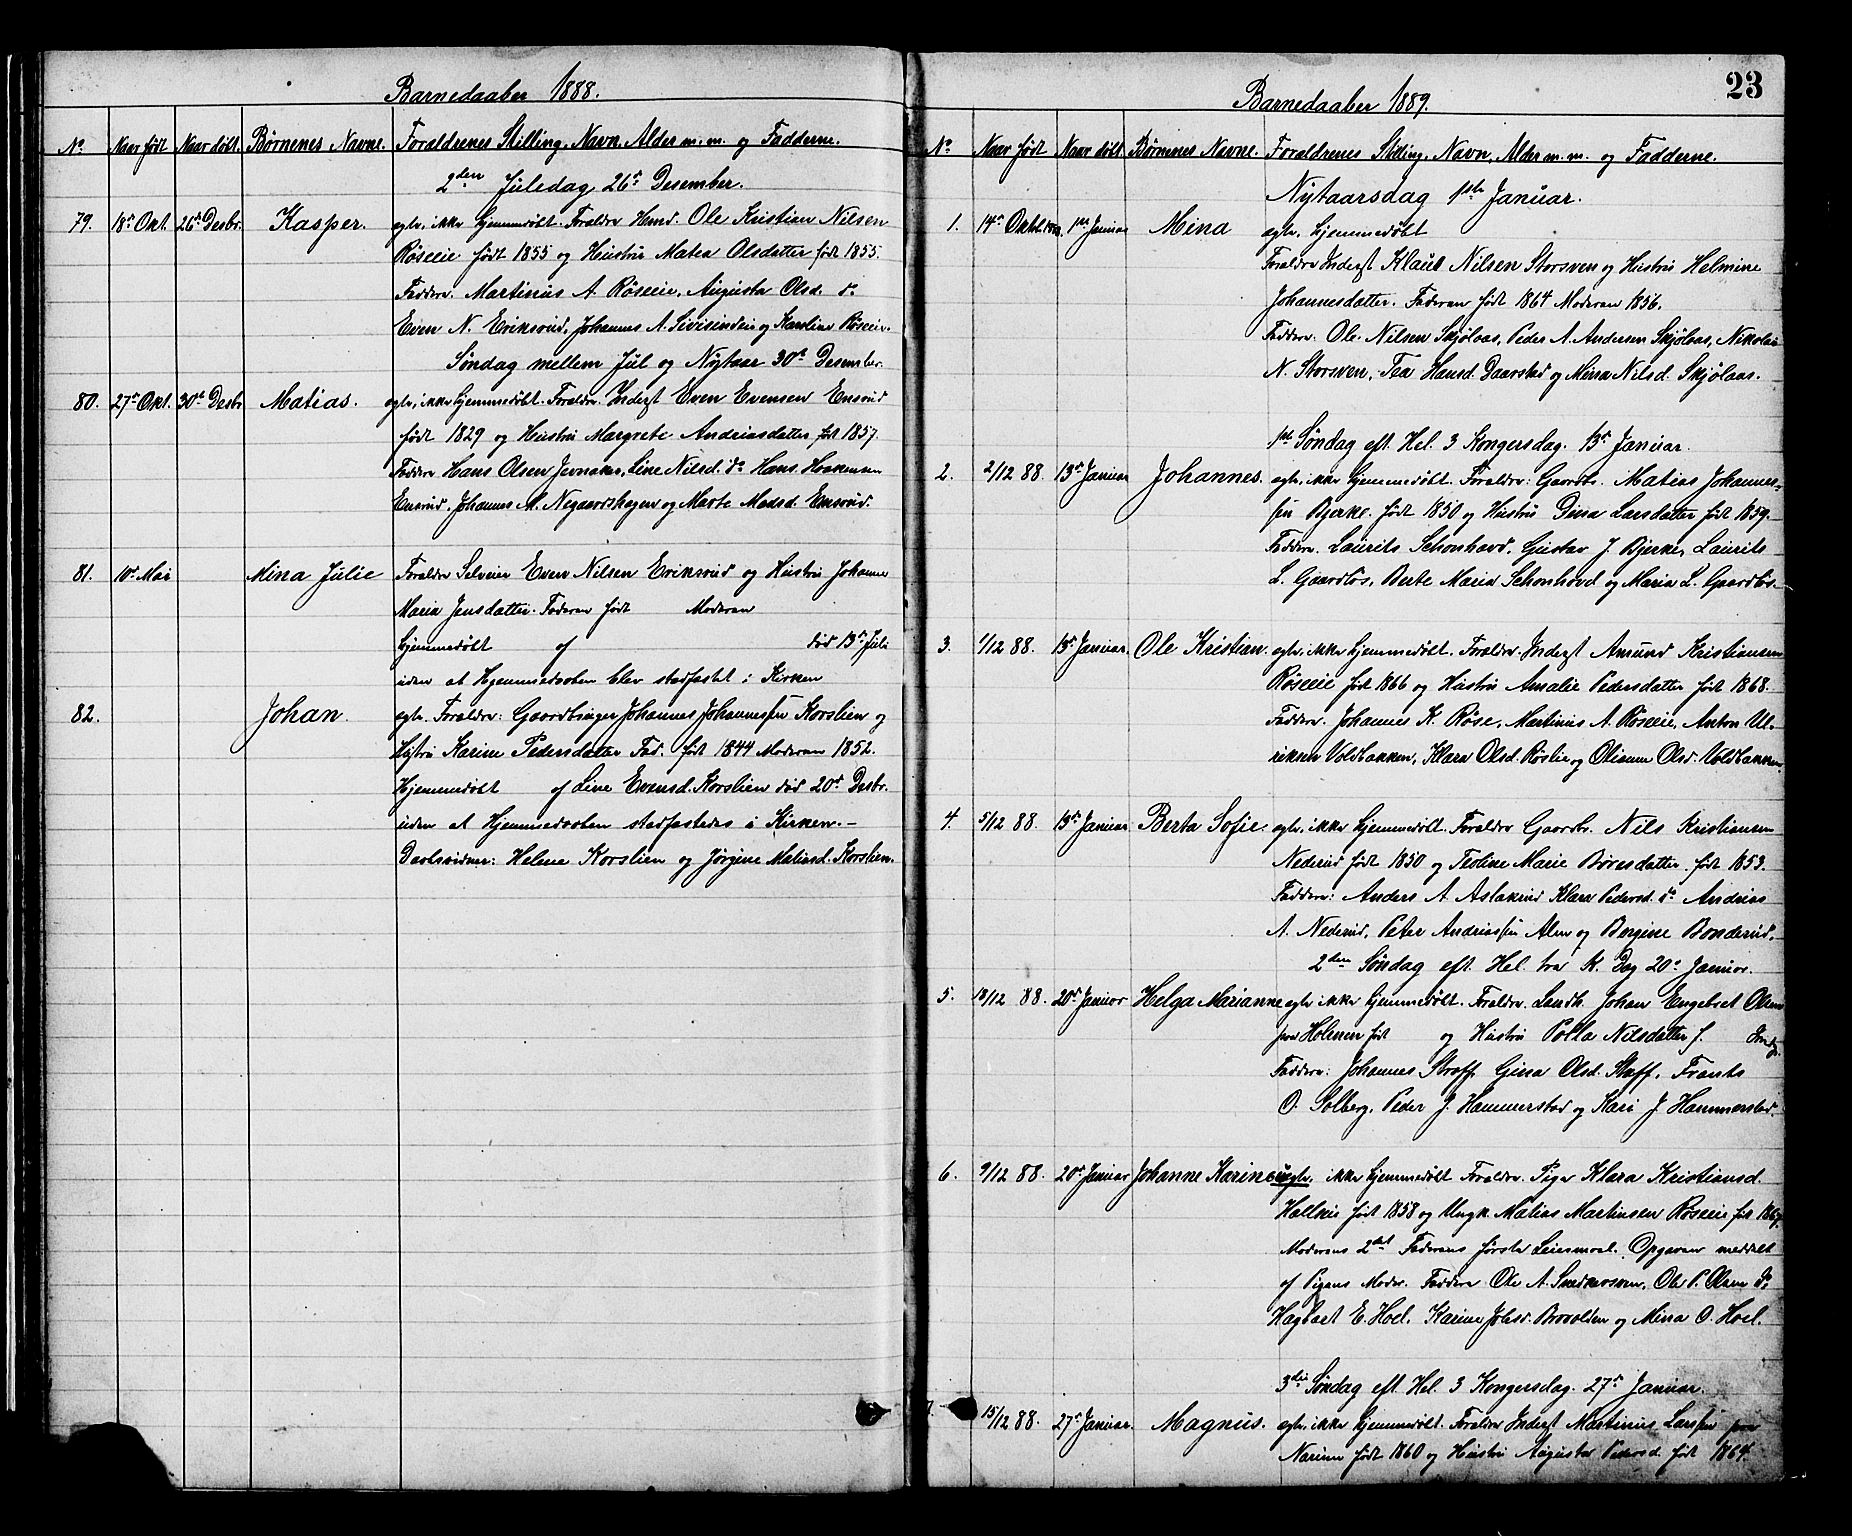 Barnedaaber 1888.
No. Naar født Naar døbt. Børnenes Navne. Forældrenes Stilling, Navn, Alder m. m. og Fadderne.
2den Juledag 26de Desember.
79. 18de Okt. 26de Desbr. Kasper. egte, ikke hjemmedøbt. Forældre Husmd. Ole Kristian Nilsen
Røseeie født 1855 og Hustru Matea Olsdatter født 1855.
Faddere. Martinus A. Røseeie, Augusta Olsd. do
Even N. Eriksrud, Johannes A. og Karoline Røseeie.
Søndag mellem Jul og Nytaar 30te Desember.
80. 27de Okt. 30te Desbr. Matias. egte, ikke hjemmedøbt. Forældre. Inderst Even Evensen Ensrud
født 1829 og Hustru Margrete Andriasdatter født 1857.
Faddere Hans Olsen Jevnaker, Line Nilsd. do Hans Haakensen
Ensrud, Johannes M. Negaardshagen og Marte Madsd. Ensrud.
81. 10de Mai Mina Julie Forældre Selveier Even Nilsen Eriksrud og Hustru Johanne
Maria Jensdatter. Faderen født Moderen
hjemmedøbt af død 13de Juli
uden at Hjemmedaaben blev stadfæstet i Kirken
82. Johan. egte. Forældre: Gaardbruger Johannes Johannessen Korslien og
Hustru Karine Pedersdatter Fad. født 1844 Moderen 1852.
Hjemmedøbt af Line Evensd. Korslien død 20de Desbr.
uden at Hjemmedaaben stadfæstedes i Kirken.-
Daabsvidner: Helene Korslien og Jørgine Matiasd. Korslien.
23
Barnedaaber 1889.
No. Naar født Naar døbt Børnenes Navne. Forældrenes Stilling, Navn, Alder m. m. og Fadderne.
Nytaarsdag 1ste Januar.
1. 14de Oktbr. 1888. 1ste Januar Mina egte. hjemmedøbt
Forældre Inderst Klaus Nilsen Storsven og Hustru Helmine
Johannesdatter. Faderen født 1864 Moderen 1856.
Faddere: Ole Nilsen Skjølaas, Peder A. Andersen Skjølaas, Nikolai
N. Storsven, Tea Hansd. Daarstad og Mina Nilsd. Skjølaas.
1ste Søndag eft. Hel. 3 Kongersdag. 13de Januar.
2. 2/12 88. 13de Januar Johannes. egte, ikke hjemmedøbt. Forældre: Gaardbr. Matias Johannes-
sen Bjerke. født 1850 og Hustru Dina Larsdatter født 1859.
Faddere. Laurits Schonhovd, Gustav J. Bjerke, Laurits
L. Gaardløs, Berte Maria Schonhovd og Maria L. Gaardløs.
3. 1/12 88. 13de Januar. Ole Kristian. egte, ikke hjemmedøbt. Forældre. Inderst Amund Kristiansen
Røseeie født 1866 og Hustru Amalie Pedersdatter født 1868.
Faddere. Johannes K. Røse, Martinus A. Røseeie, Anton Ul-
riksen Voldbakken, Klara Olsd. Røslie og Oliane Olsd. Voldbakken.
4. 5/12 88. 13de Januar Berta Sofie. egte, ikke hjemmedøbt. Forældre Gaardbr. Nils Kristiansen
Nederud født 1850 og Teoline Marie Børresdatter født 1853.
Faddere: Anders A. Aslakrud Klara Pedersd. do Andrias
A. Nederud, Peter Andriassen Alm og Bergine Bonderud.
2den Søndag eft. Hel. tre K. Dag 20de Januar.
5. 18/12 88. 20de Januar Helga Marianne egte, ikke hjemmedøbt. Forældre. Landh. Johan Engebret Olsen
paa Holmen født og Hustru Polla Nilsdatter f.
Faddere: Johannes Staff, Gina Olsd. Staff, Frants
O. Solberg, Peder J. Hammerstad og Kari J. Hammerstad.
6. 9/12 88. 20de Januar Johanne Karine uegte, ikke hjemmedøbt Forældre. Pige Klara Kristiansd.
født 1858 og Ungk. Matias Martinsen Røseeie født 1867.
Moderens 2det Faderens første Leiermaal. Opgaven meddelt
af Pigens Moder. Faddere Ole A. Snekersveen, Ole P. Olsen do
Hagbart E. Hoel, Karine Johsd. Brovolden og Mina O. Hoel.
3die Søndag eft. Hel. 3 Kongersdag. 27de Januar.
7. 15/12 88. 27de Januar. Magnus. egte, ikke hjemmedøbt. Forældre Inderst Martinus Larssen paa
Narum født 1860 og Hustru Augusta Pedersd. født 1864.